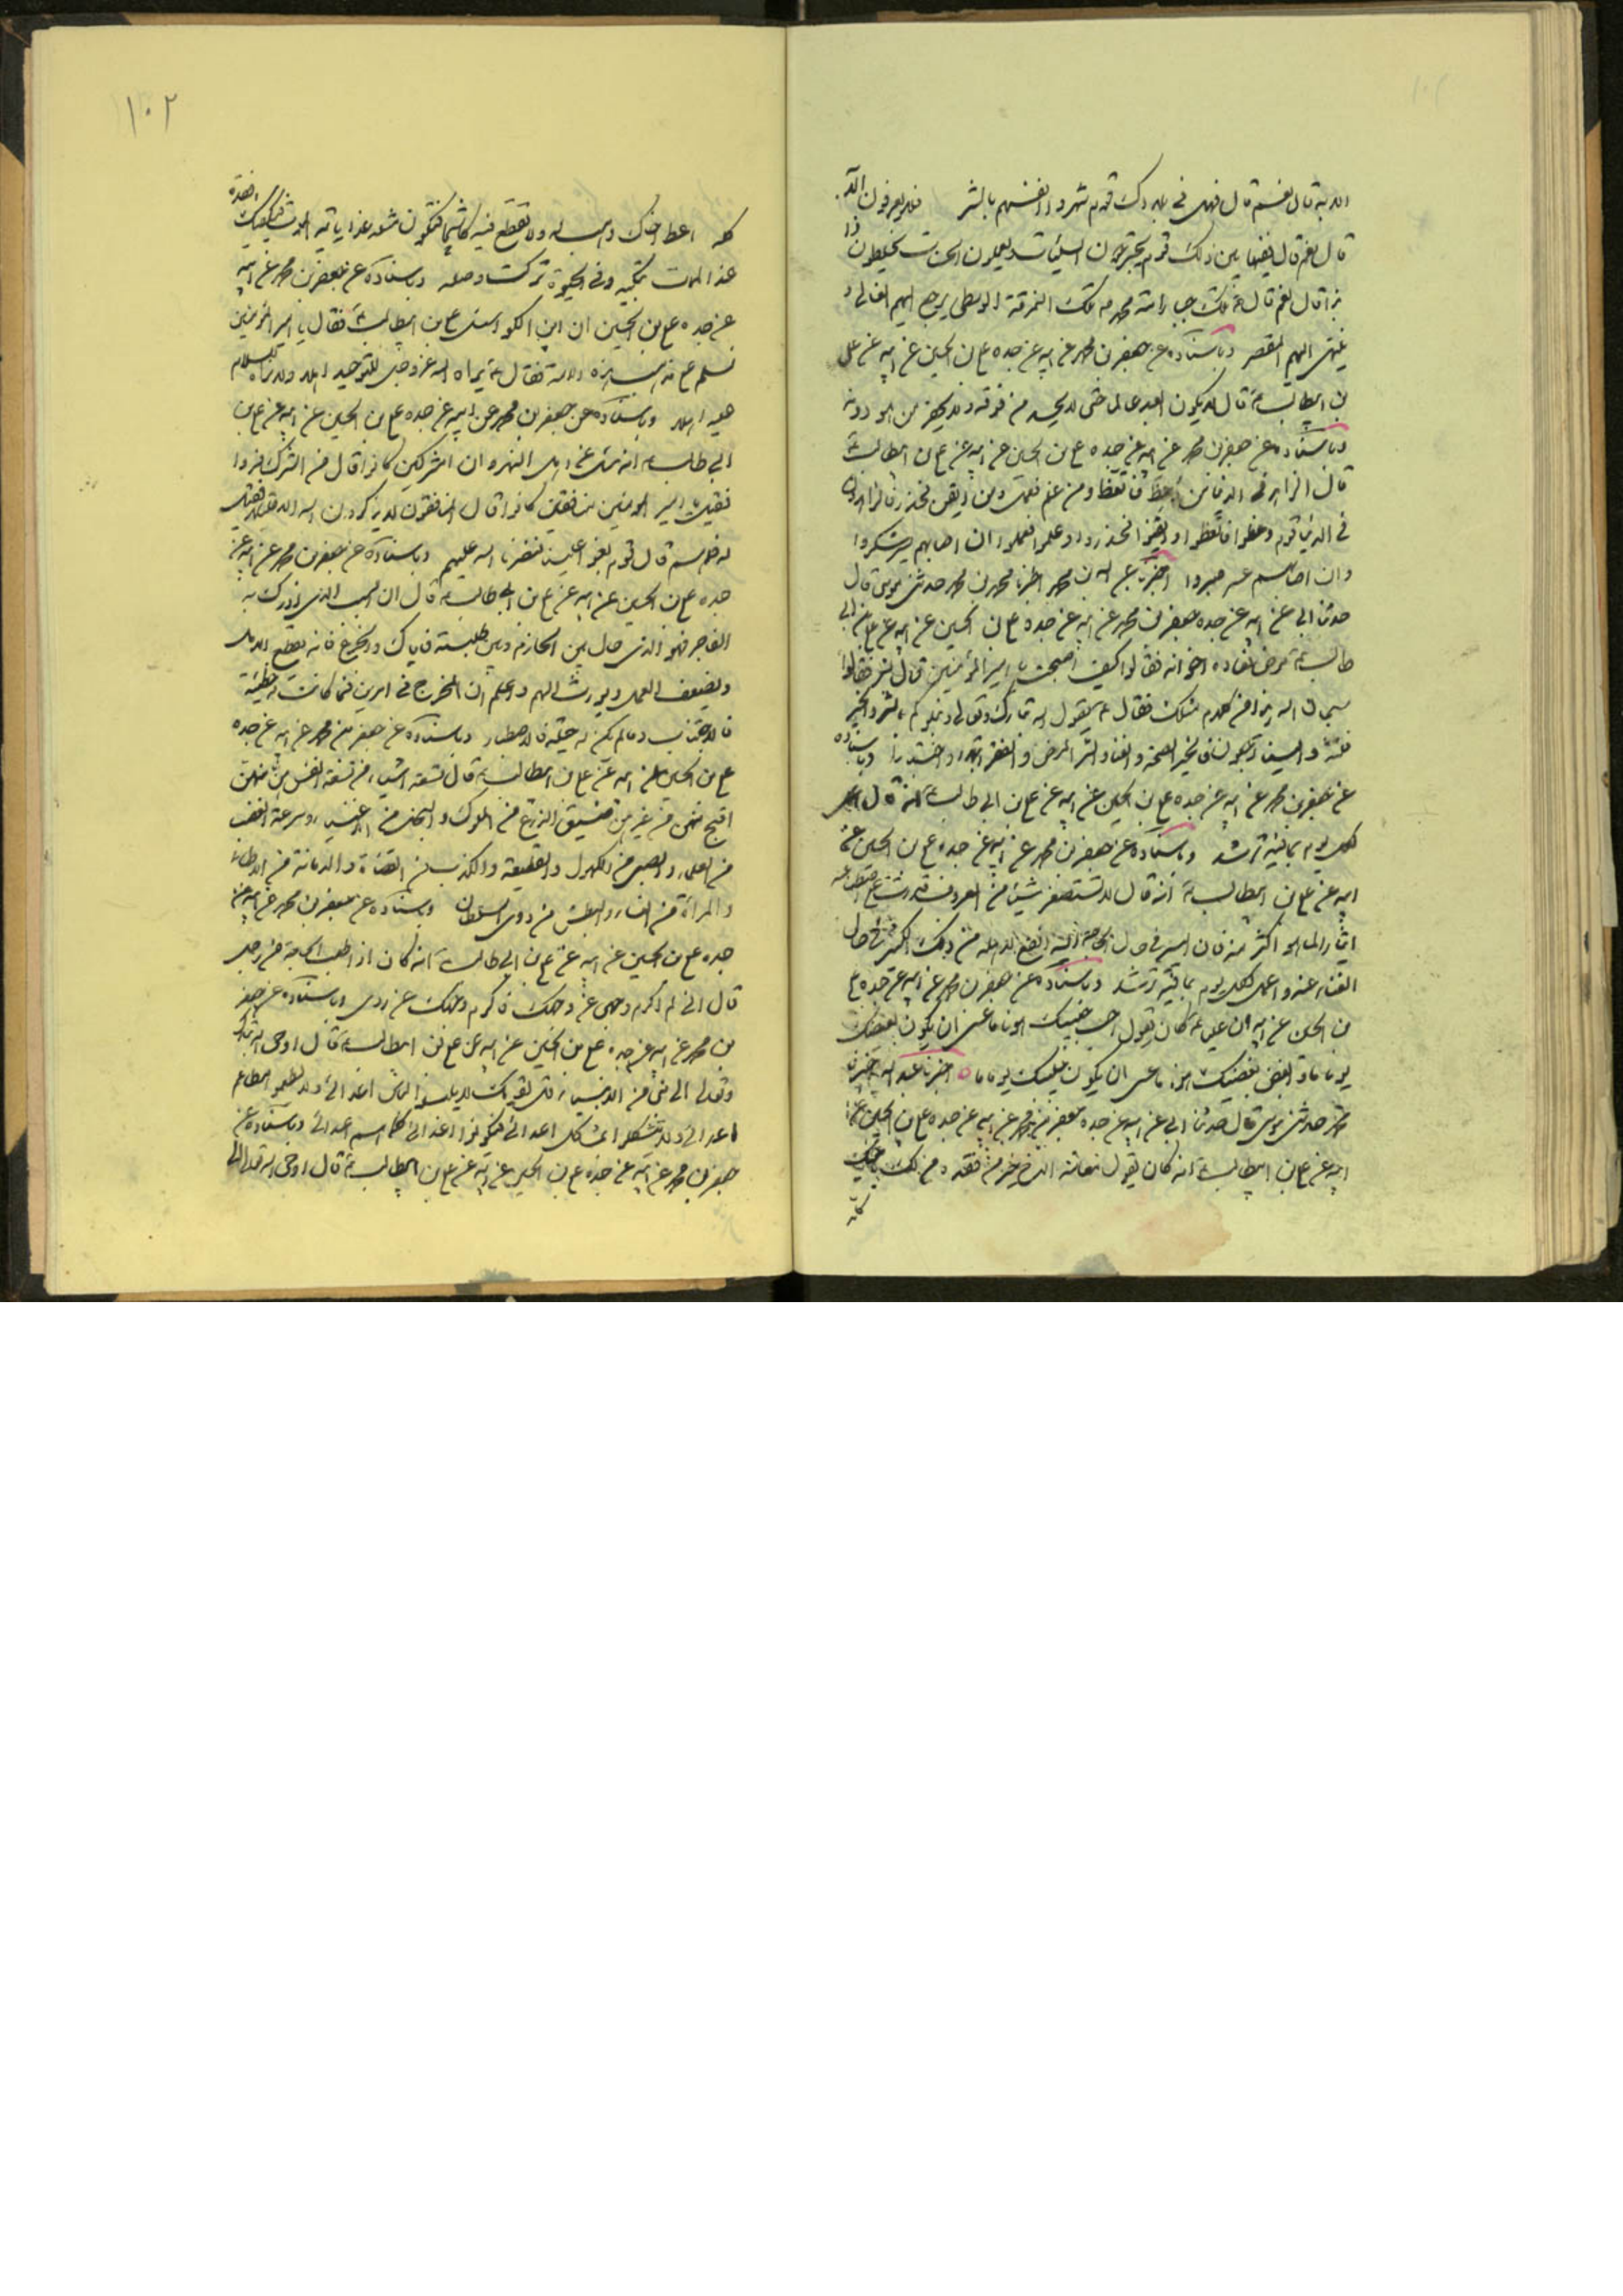 قال نعم قال فيما بين ذلك قوم يجترحون السيئات ويعملون الحسنات يخلطون ذا
بذا قال نعم قال تلك خيار امة محمد تلك النمرقة الوسطى يرجع اليهم الغالى و
ينتهى اليهم المقصر وباسناده عن جعفر بن محمد عن ابيه عن جده على بن الحسين عن ابيه عن على
بن ابيطالب قال لا يكون العبد عالما حتى لا يحسد من فوقه ولا يحقر من هو دونه
وباسناده عن جعفر بن محمد عن ابيه عن جده على بن الحسين عن ابيه عن على بن ابيطالب
قال الزاهد فى الدنيا من وعظ فاتعظ ومن علم فعمل ومن ايقن فحذر فالزاهدون
فى الدنيا قوم وعظوا فاتعظوا وايقنوا فحذروا وعلموا فعملوا ان اصابهم يسر شكروا
وان اصابهم عسر صبروا اخبرنا عبد الله بن محمد اخبرنا محمد بن محمد حدثنى موسى قال
حدثنا ابى عن ابيه عن جده جعفر بن محمد عن ابيه عن جده على بن الحسين عن ابيه عن على بن ابى
طالب مرض فعاده اخوانه فقالوا كيف اصبحت يا امير المؤمنين قال بشر فقالوا
سبحان الله هذا من كلام مثلك فقال يقول الله تبارك وتعالى ونبلوكم بالشر والخير
فتنة والينا ترجعون فالخير الصحة والغنا والشر المرض والفقر ابتلاء واختبارا وباسناده
عن جعفر بن محمد عن ابيه عن جده على بن الحسين عن ابيه عن على بن ابى طالب انه قال اعمل
لكل يوم بما فيه ترشد وباسناده عن جعفر بن محمد عن ابيه عن جده على بن الحسين عن
ابيه عن على بن ابيطالب انه قال لا تستصغر شيئا من المعروف قدرت على اصطناعه
ايثارا لما هو اكثر منه فان اليسير فى حال الحاجة اليه انفع لاهله من ذلك الكثير فى حال
الغناء عنه واعمل لكل يوم بما فيه ترشد وباسناده عن جعفر بن محمد عن ابيه عن جده على
بن الحسين عن ابيه ان عليا كان يقول احبب حبيبك هونا ما عسى ان يكون بغيضك
يوما ما وابغض بغيضك هونا ما عسى ان يكون حبيبك يوما ما اخبرنا عبد الله اخبرنا
محمد حدثنى موسى قال حدثنا ابى عن ابيه عن جده جعفر بن محمد عن ابيه عن جده على بن الحسين عن
ابيه عن على بن ابيطالب انه كان يقول معاتبة الاخ خير من فقده ومن لك باخيك
كله
١٠٢
كله اعط اخاك
عند الممات تبكيه وفى الحيوة تركت وصله وباسناده عن جعفر بن محمد عن ابيه
عن جده على بن الحسين ان ابن الكوا سئل على بن ابيطالب فقال يا امير المؤمنين
عليه اهلا وباسناده عن جعفر بن محمد عن ابيه عن جده على بن الحسين عن ابيه عن على بن
ابى طالب انه سئل عن اهل النهروان امشركين كانوا قال من الشرك فروا
فقيل يا امير المؤمنين منافقين كانوا قال المنافقون لا يذكرون الله الا قليلا فقيل
له فما هم قال قوم بغوا علينا فنصرنا الله عليهم وباسناده عن جعفر بن محمد عن ابيه عن
جده على بن الحسين عن ابيه عن على بن ابى طالب قال ان السبب الذى ادرك به
الفاجر فهو الذى حال بين الحازم وبين طلبته فاياك والجزع فانه يقطع الامل
ويضعف العمل ويورث الهم واعلم ان المخرج فى امرين فما كانت له حيلة
فالاجتناب وما لم تكن له حيلة فالاصطبار وباسناده عن جعفر بن محمد عن ابيه عن جده
على بن الحسين عن ابيه عن على بن ابيطالب قال تسعة اشياء من تسعة انفس هن منهم
اقبح منهن من غيرهم ضيق الذرع من الملوك والبخل من الاغنياء وسرعة الغضب
من العلماء والصبى من الكهول والقطيعة والكذب من القضاة والزمانة من الاطباء
والمراة من النساء والبطش من ذوى السلطان وباسناده عن جعفر بن محمد عن ابيه عن
جده على بن الحسين عن ابيه عن على بن ابى طالب انه كان اذا طلب الحاجة من رجل
قال انى لم اكرم وجهى عن وجهك فاكرم وجهك عن ردى وباسناده عن جعفر
بن محمد عن ابيه عن جده على بن الحسين عن ابيه عن على بن ابيطالب قال اوحى الله تبارك
وتعالى الى نبى من الانبياء قل لقومك لا يلبسوا لباس اعدائى ولا يطعموا مطاعم
اعدائى ولا يتشكلوا مشاكل اعدائى فيكونوا اعدائى كما هم اعدائى وباسناده عن
جعفر بن محمد عن ابيه عن جده على بن الحسين عن ابيه عن على بن ابيطالب قال اوحى الله تعالى الى